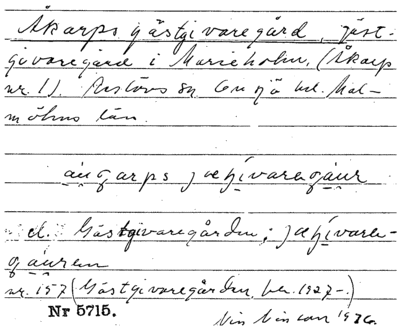 Åkarps gästgivaregård, gäst-
givaregård i Marieholm, (Åkarp
nr 1). Reslövs sn Onsjö hd. Mal-
möhus län.
åu̯garps jæʃívaregáur
d. Gästgivaregården; jæʃívare-
gáuren
nr. 157 (Gästgivaregården, ber. 1927-.)
Nr 5715.
1936